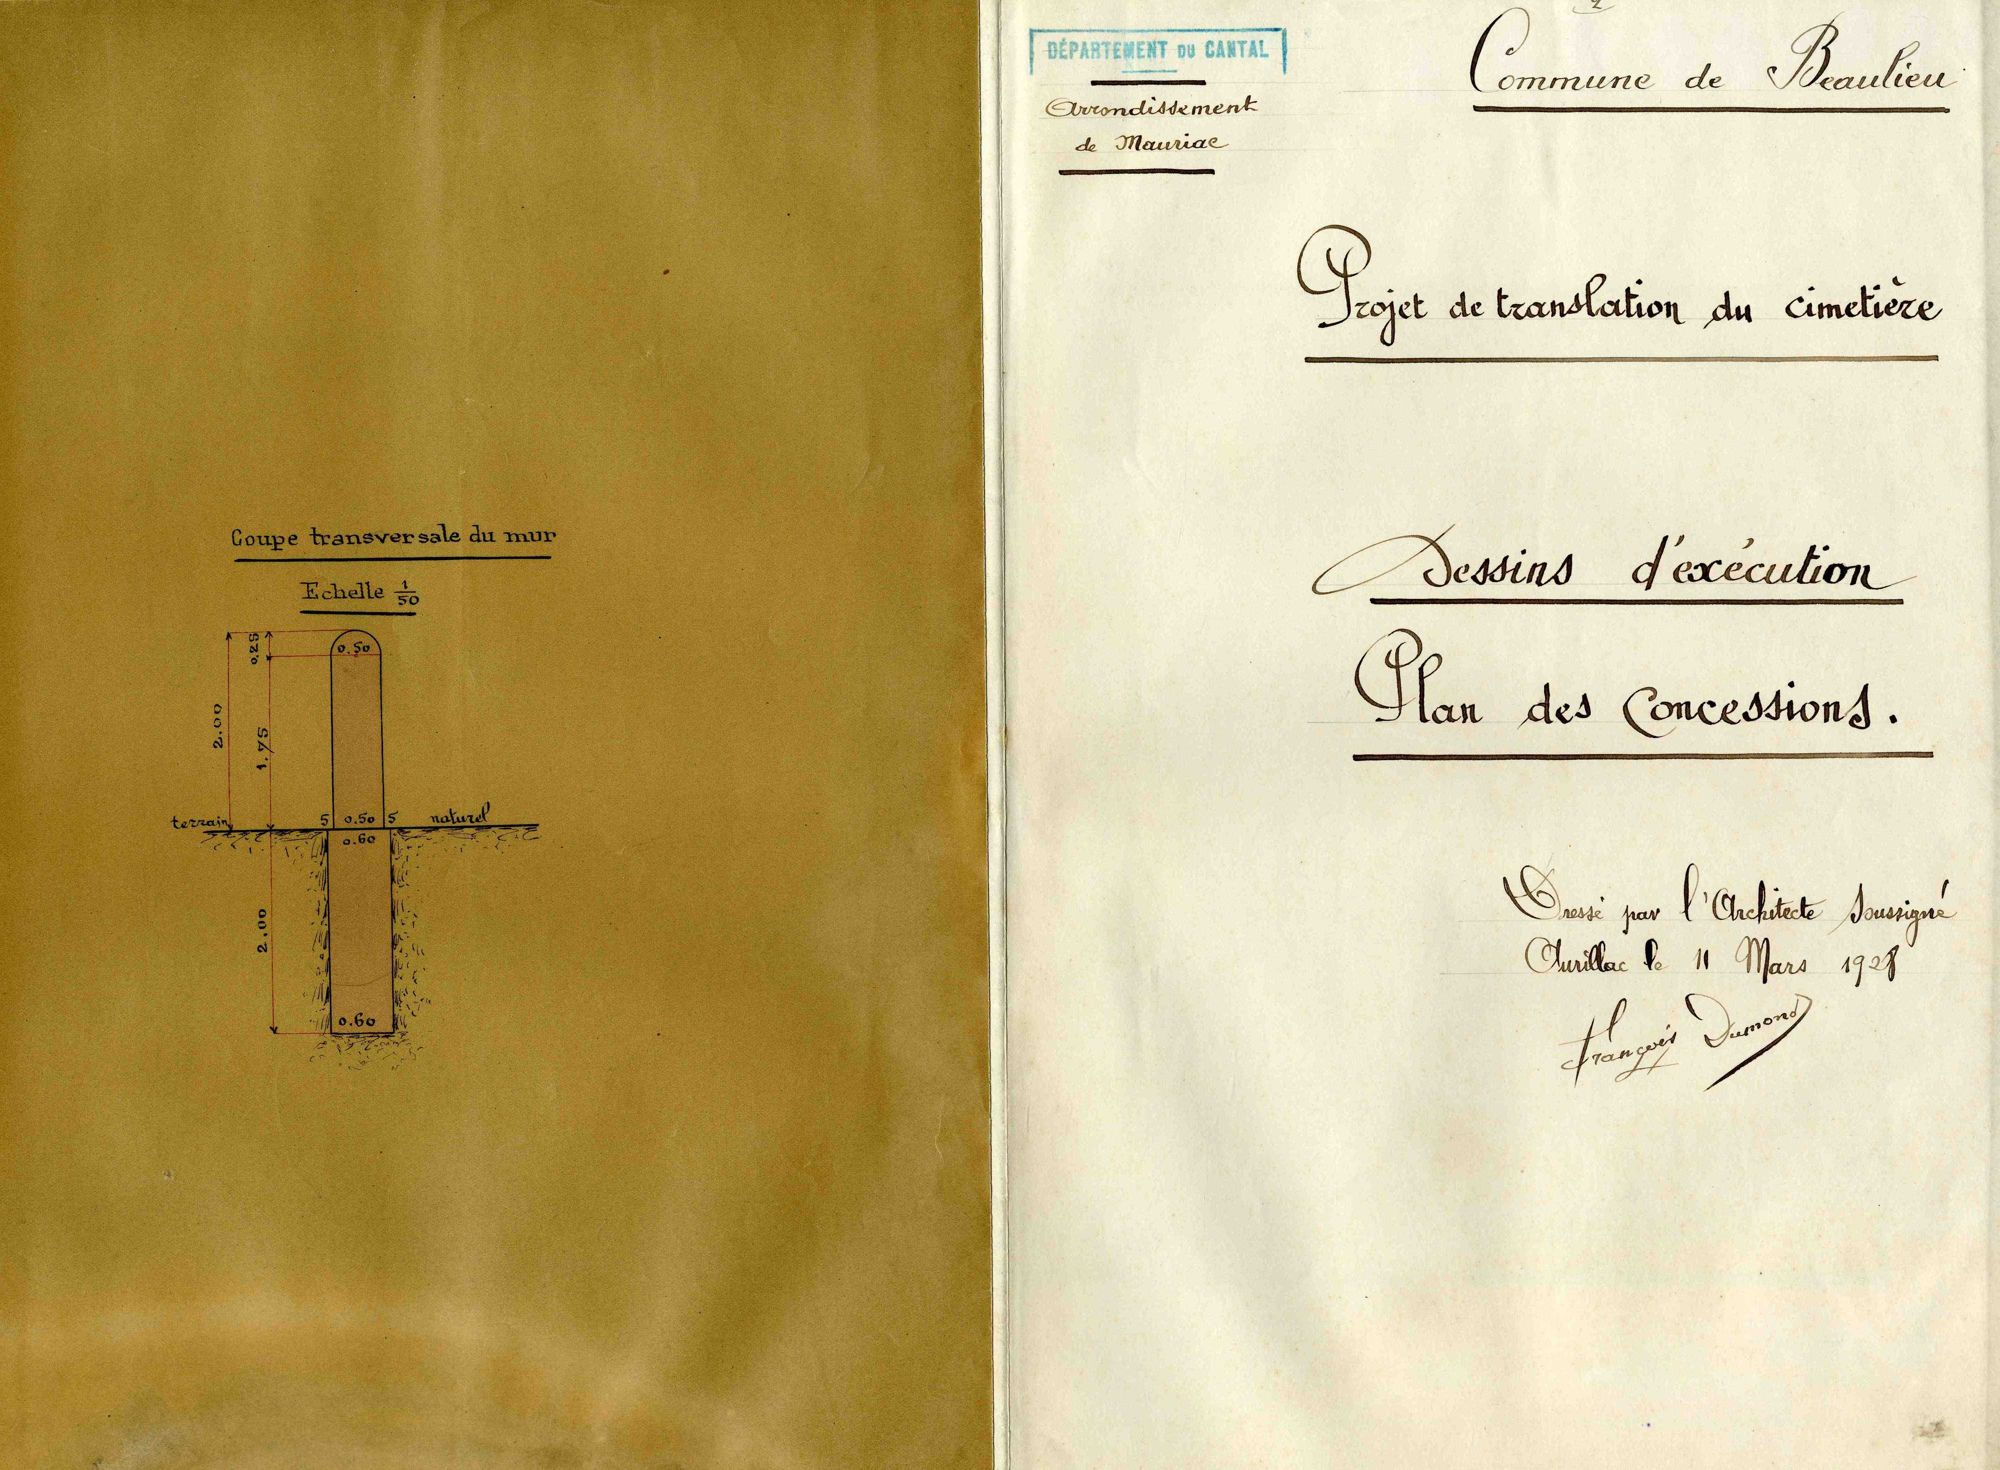 Coupe transversale du mur
Echelle 1/50
0,25
0.50
2.00
1,75
terrain
5
0.50
5
naturel
0.60
2.00
0.60
2
DÉPARTEMENT DU CANTAL
Arrondissement
de Mauriac
Commune de Beaulieu
Projet de translation du cimetière
Dessins d'exécution
Plan des Concessions.
Dressé par l'Architecte Soussigné
Aurillac le 11 Mars 1928
François Dumond